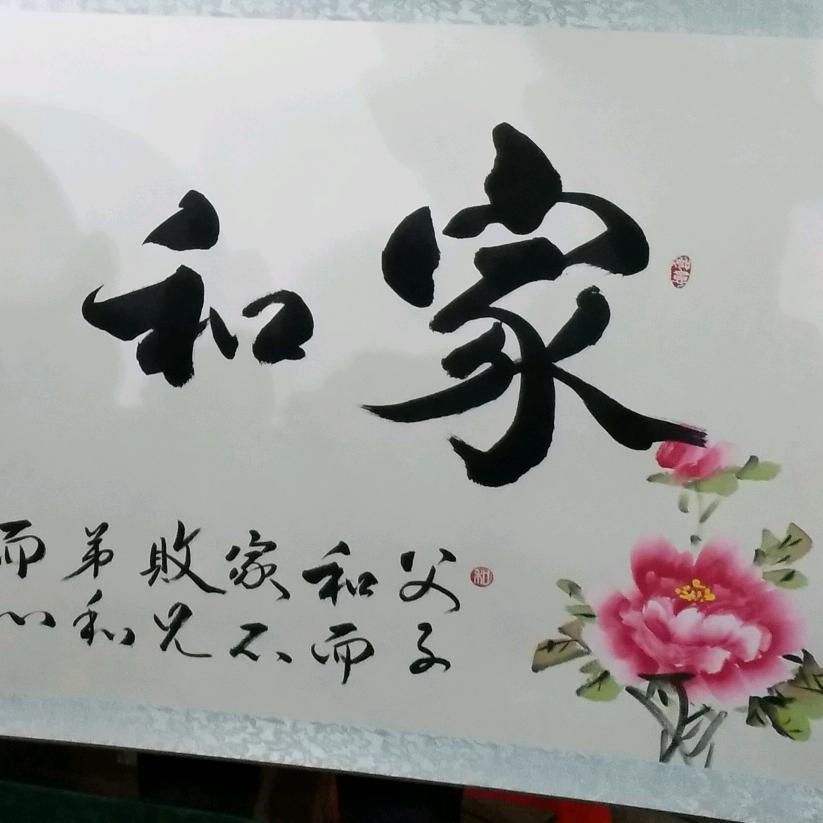 家和
父子
和而
家不
敗兄
弟和
而